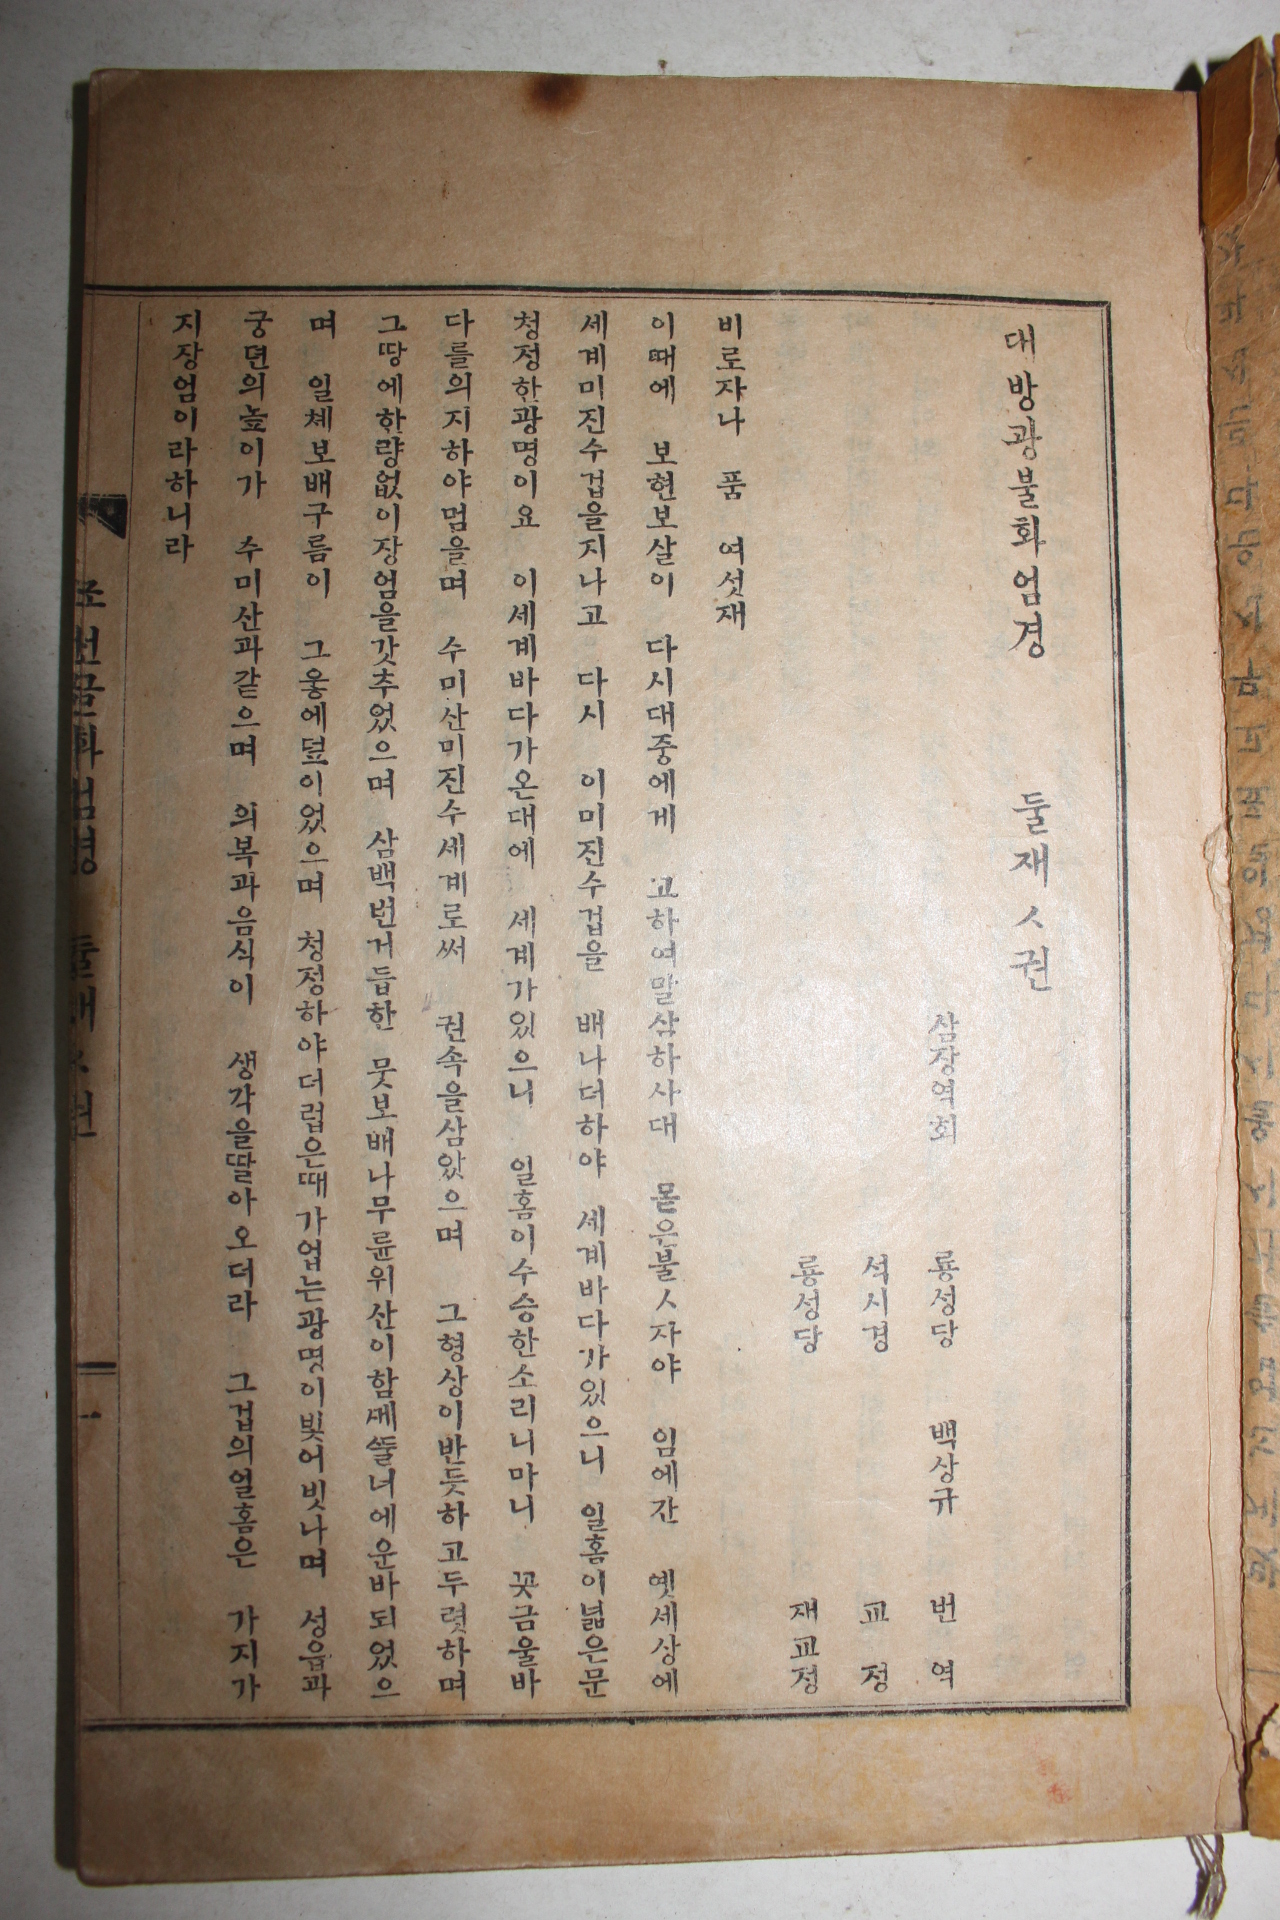 대방광불화엄경 둘재ㅅ권
삼장역회 룡성당 백상규 번역
석시경 교정
룡성당 재교정
비로자나 품 여섯재
이때에 보현보살이 다시대중에게 고하여말삼하사대 몯은불ㅅ자야 임에간 옛세상에
세계미진수겁을지나고 다시 이미진수겁을 배나더하야 세계바다가있으니 일홈이넓은문
청정한광명이요 이세계바다가온대에 세계가있으니 일홈이수승한소리니마니 꽃금울바
다를의지하야멈을며 수미산미진수세계로써 권속을삼았으며 그형상이반듯하고두렷하며
그땅에한량없이장엄을갓추었으며 삼백번거듭한 뭇보배나무륜위산이함께뚤너에운바되었으
며 일체보배구름이 그웋에덮이었으며 청정하야더럽은때가업는광명이빛어빗나며 성읍과
궁뎐의높이가 수미산과같으며 의복과음식이 생각을딸아오더라 그겁의얼홈은 가지가
지장엄이라하니라
조선글화엄경 둘재ㅅ권 一